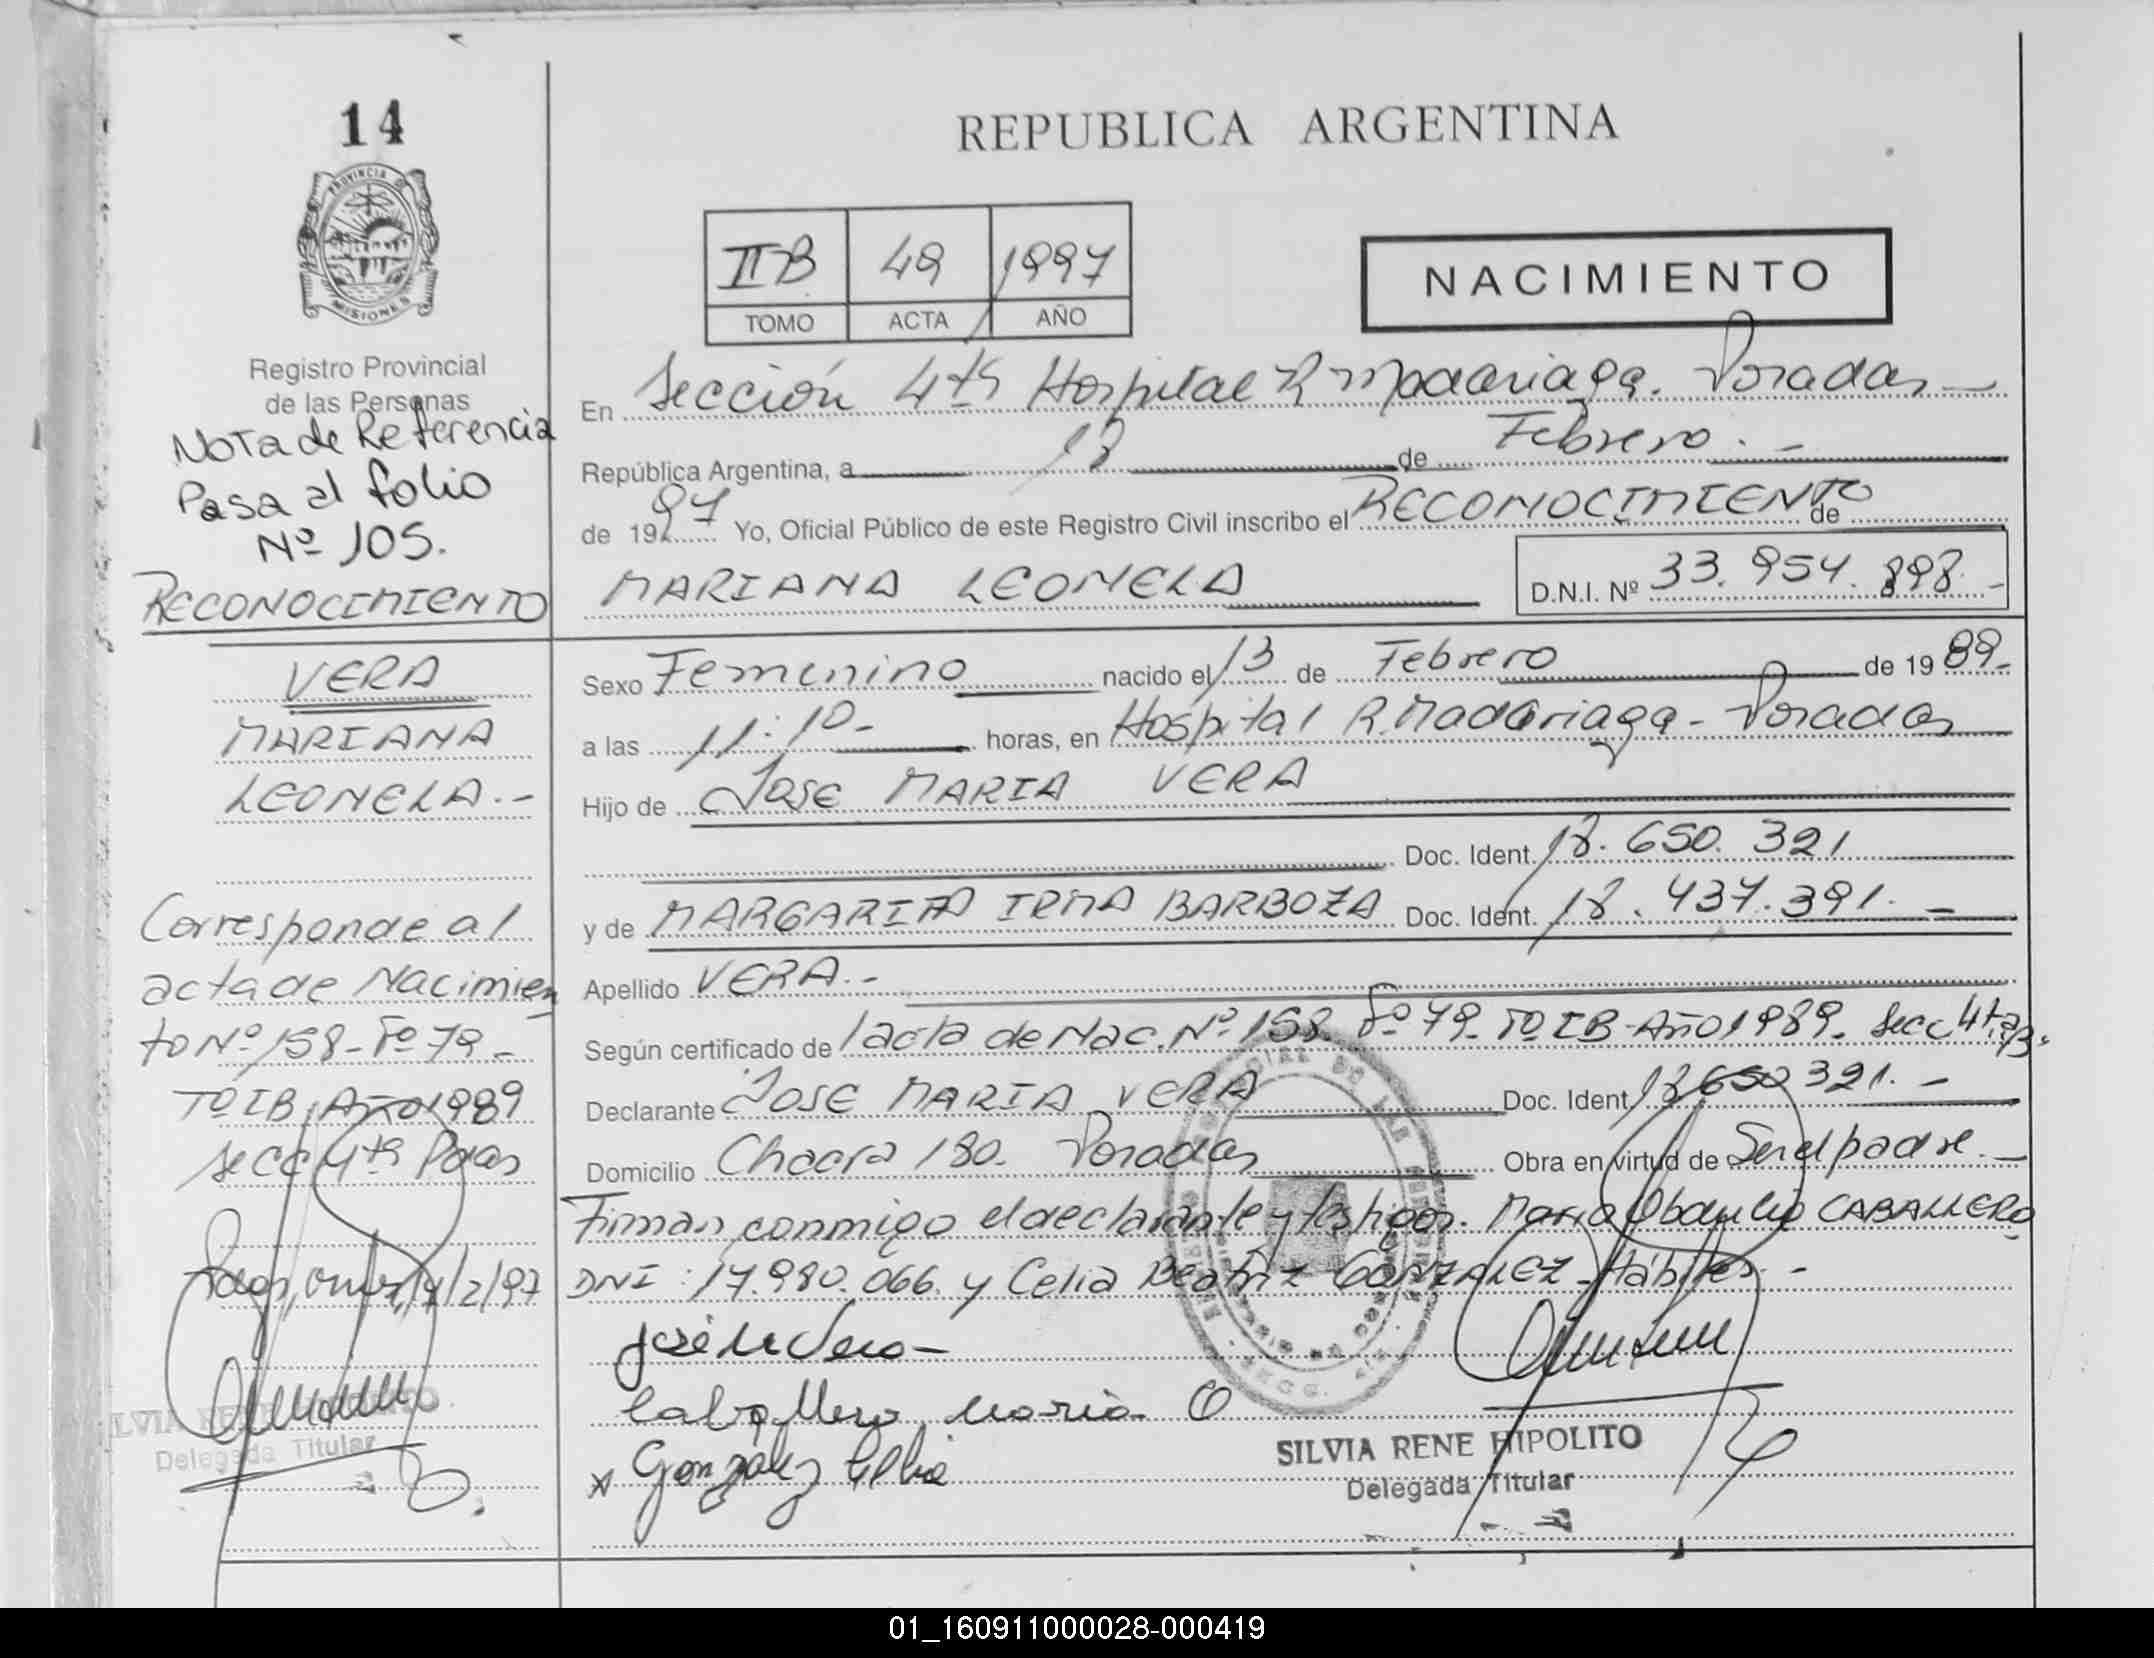 14
REPUBLICA ARGENTINA
PROVINCIA DE
MISIONES
IIB 49 1997
TOMO ACTA AÑO
NACIMIENTO
Registro Provincial
de las Personas
Nota de Referencia
Pasa al folio
Nº 105.
RECONOCIMIENTO
VERA
MARIANA
LEONELA.-
Corresponde al
acta de Nacimien
to Nº 158-Fº 79-
Tº IB, Año 1989
Secc 4ta Pdas
SILVIA RENE HIPOLITO
Delegada Titular
En Sección 4ta Hospital R Madariaga. Posadas
República Argentina, a 18 de Febrero.-
de 1997 Yo, Oficial Público de este Registro Civil inscribo el RECONOCIMIENTO de
MARIANA LEONELA D.N.I. Nº 33.954.898.-
Sexo Femenino nacido el 13 de Febrero de 1989-
a las 11:10- horas, en Hospital R. Madariaga - Posadas
Hijo de JOSE MARIA VERA
Doc. Ident. 18.650.321
y de MARGARITA IRMA BARBOZA Doc. Ident. 18.437.391.-
Apellido VERA.-
Según certificado de 1 acta de Nac. Nº 158. Fº 79. Tº IB-Año 1989. Secc 4ta
Declarante JOSE MARIA VERA Doc. Ident 18650321.-
Domicilio Chacra 180. Posadas Obra en virtud de Ser el padre.-
Firman conmigo el declarante y testigos. Maria CABALLERO
DNI: 17.980.066. y Celia Beatriz GONZALEZ - Hábiles.-
José M Vera-
Caballero Maria O
x González Celia
SILVIA RENE HIPOLITO
Delegada Titular
01_160911000028-000419